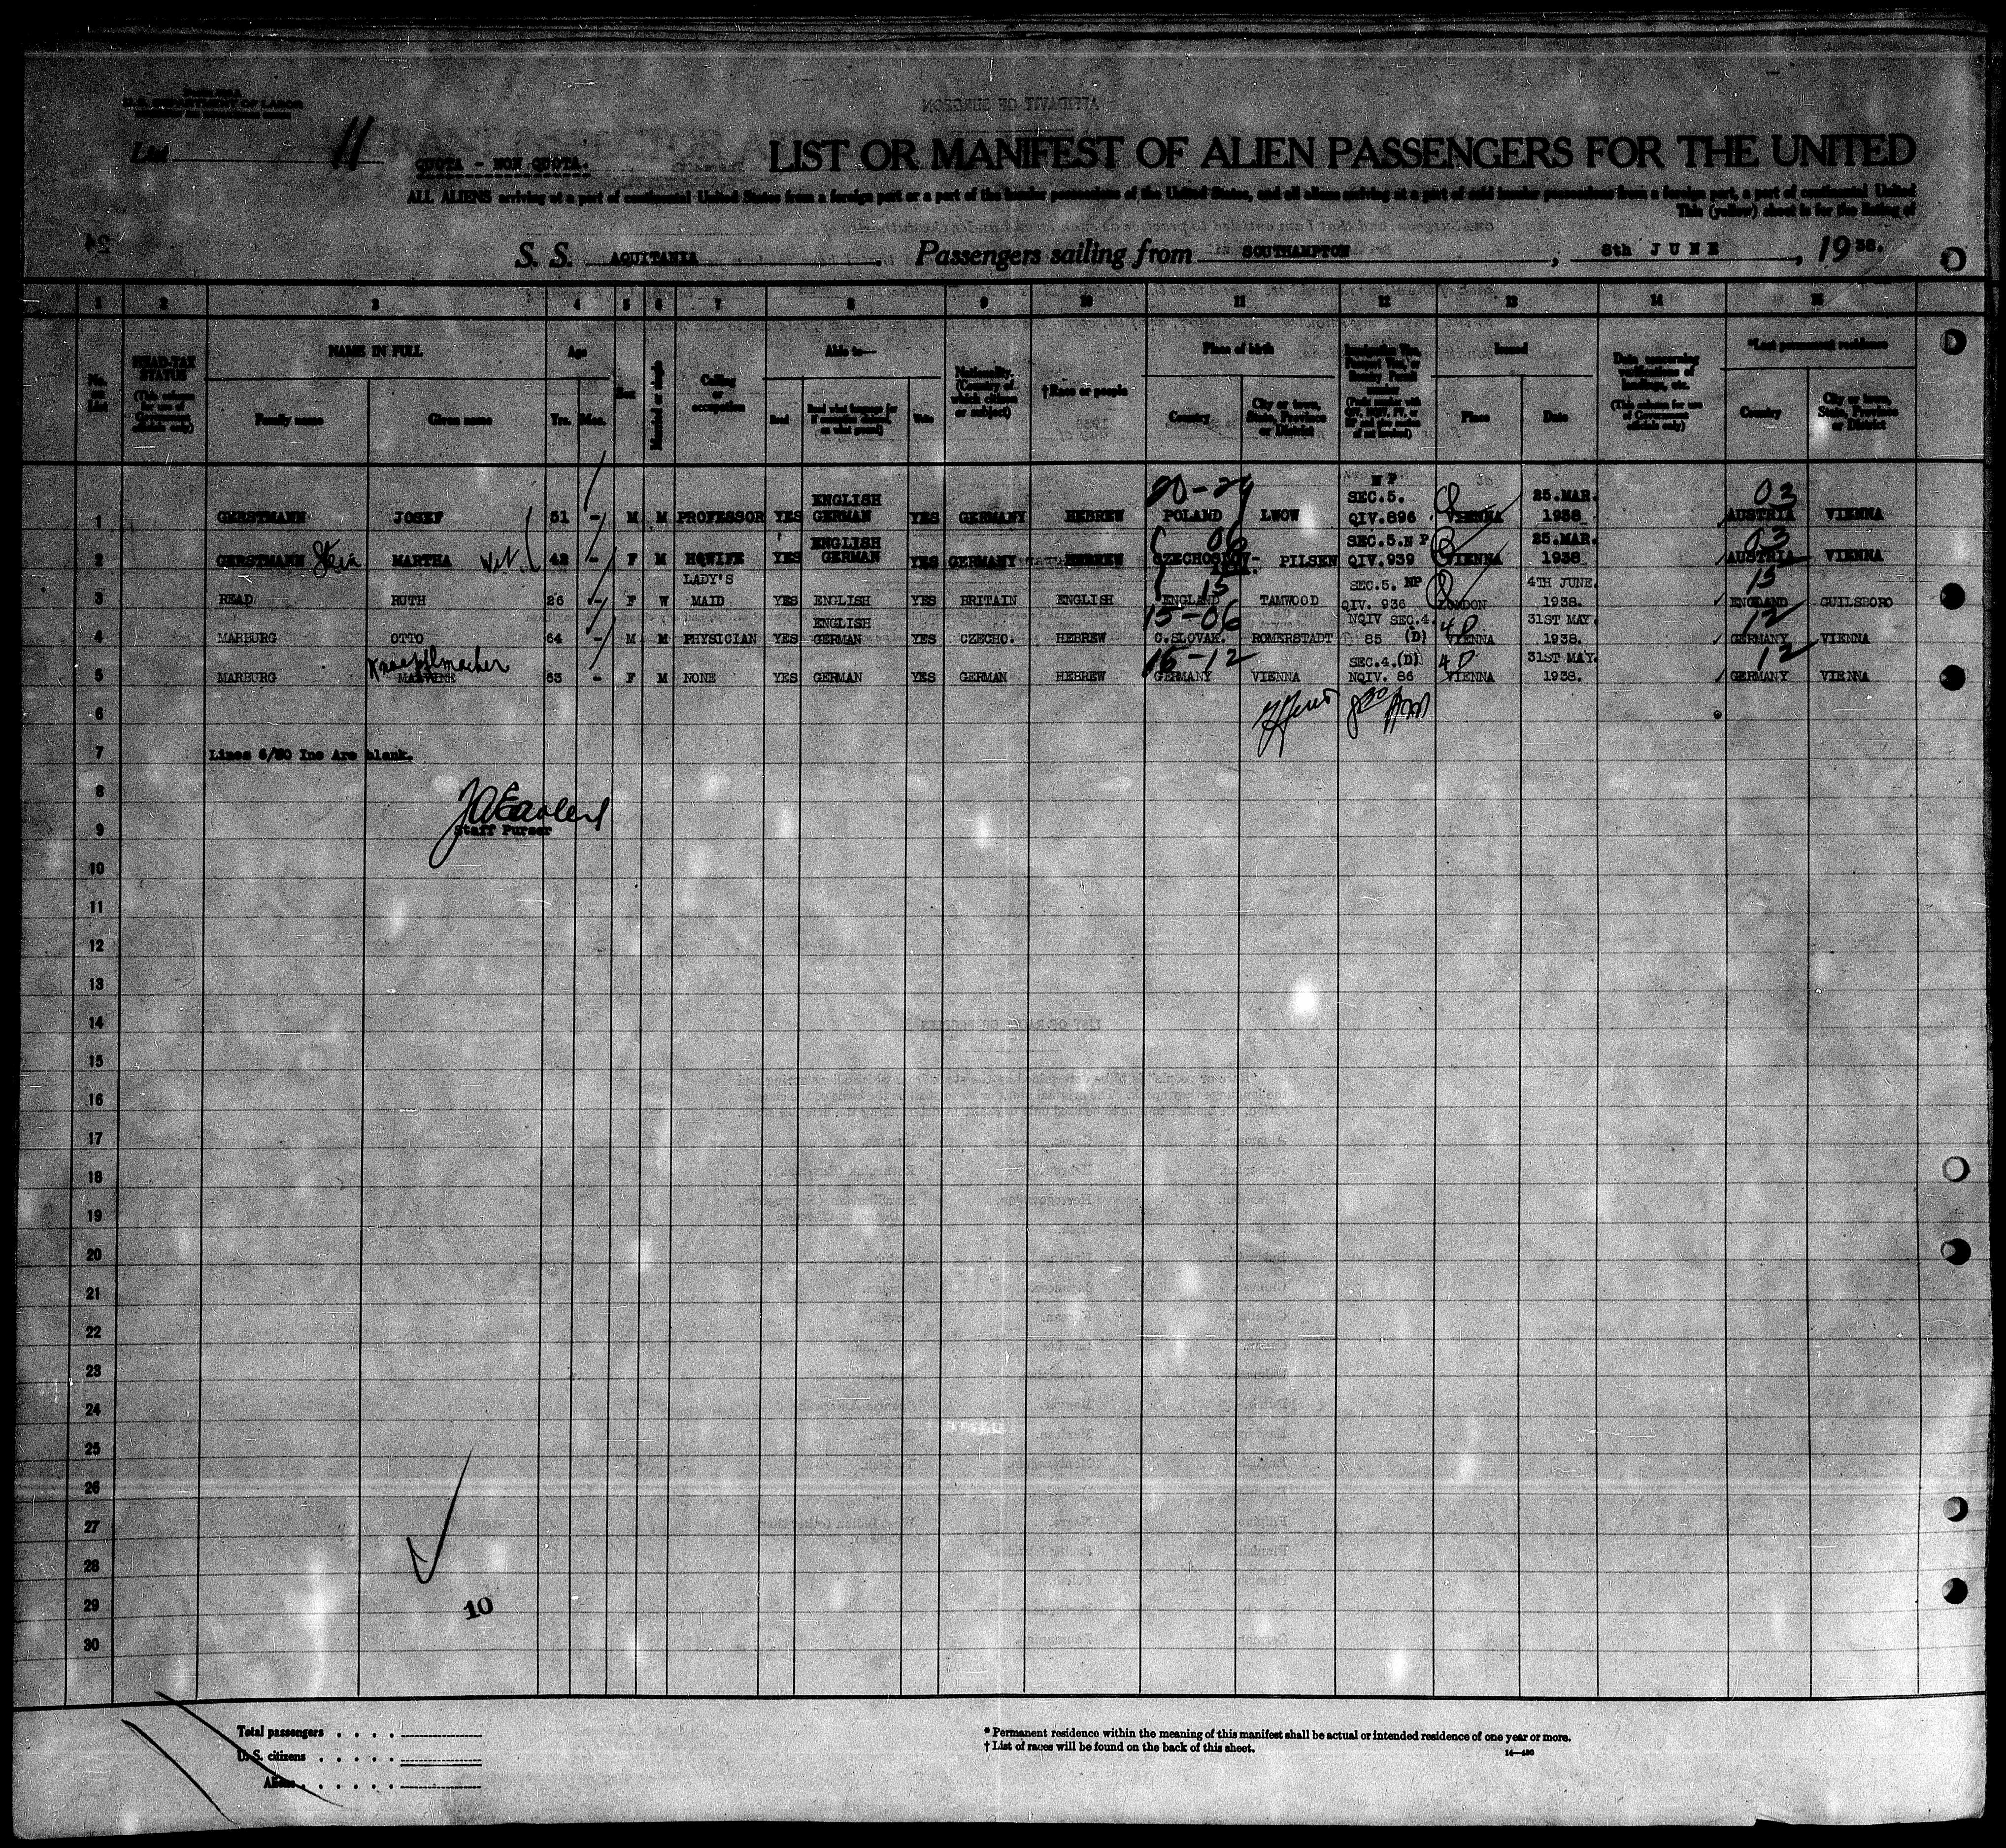 U.S. DEPARTMENT OF LABOR
List 11
QUOTA - NON QUOTA.
LIST OR MANIFEST OF ALIEN PASSENGERS FOR THE UNITED
ALL ALIENS arriving at a port of continental United States from a foreign port or a port of the insular possessions of the United States, and all aliens arriving at a port of said insular possessions from a foreign port, a port of continental United
This (yellow) sheet is for the listing of
S. S. AQUITANIA Passengers sailing from SOUTHAMPTON, 8th JUNE, 1938.
1 2 3 4 5 6 7 8 9 10 11 12 13 14 15
No. on List
HEAD-TAX STATUS (This column for use of Government officials only)
NAME IN FULL
Family name Given name
Age
Yrs. Mos.
Sex
Married or single
Calling or occupation
Able to—
Read Read what language (or if exemption claimed, on what ground) Write
Nationality. (Country of which citizen or subject)
†Race or people
Place of birth
Country City or town, State, Province or District
Issued
Place Date
Data concerning verifications of landings, etc. (This column for use of Government officials only)
*Last permanent residence
Country City or town, State, Province or District
20-24 03
1 GERSTMANN JOSEF 51 - M M PROFESSOR YES ENGLISH GERMAN YES GERMANY HEBREW POLAND LWOW NP SEC.5. QIV.896 VIENNA 25.MAR. 1938 AUSTRIA VIENNA
06 03
2 GERSTMANN Stein MARTHA 42 - F M H.WIFE YES ENGLISH GERMAN YES GERMANY HEBREW CZECHOSLOV- PILSEN SEC.5.NP QIV.939 VIENNA 25.MAR. 1938 AUSTRIA VIENNA
15 15
3 READ RUTH 26 - F W LADY'S MAID YES ENGLISH YES BRITAIN ENGLISH ENGLAND TAMWOOD SEC.5. NP QIV. 936 LONDON 4TH JUNE. 1938. ENGLAND GUILSBORO
15-06 12
4 MARBURG OTTO 64 - M M PHYSICIAN YES ENGLISH GERMAN YES CZECHO. HEBREW C.SLOVAK. ROMERSTADT NQIV SEC.4. 85 (D) 4D VIENNA 31ST MAY. 1938. GERMANY VIENNA
Knoepflmacher 15-12 12
5 MARBURG MALVINE 53 - F M NONE YES GERMAN YES GERMAN HEBREW GERMANY VIENNA SEC.4.(D) NQIV. 86 4D VIENNA 31ST MAY. 1938. GERMANY VIENNA
6
7 Lines 6/30 Inc Are blank.
8
9 Staff Purser
10
11
12
13
14
15
16
17
18
19
20
21
22
23
24
25
26
27
28
29
10
30
Total passengers
U. S. citizens
Aliens
* Permanent residence within the meaning of this manifest shall be actual or intended residence of one year or more.
† List of races will be found on the back of this sheet.
14—480